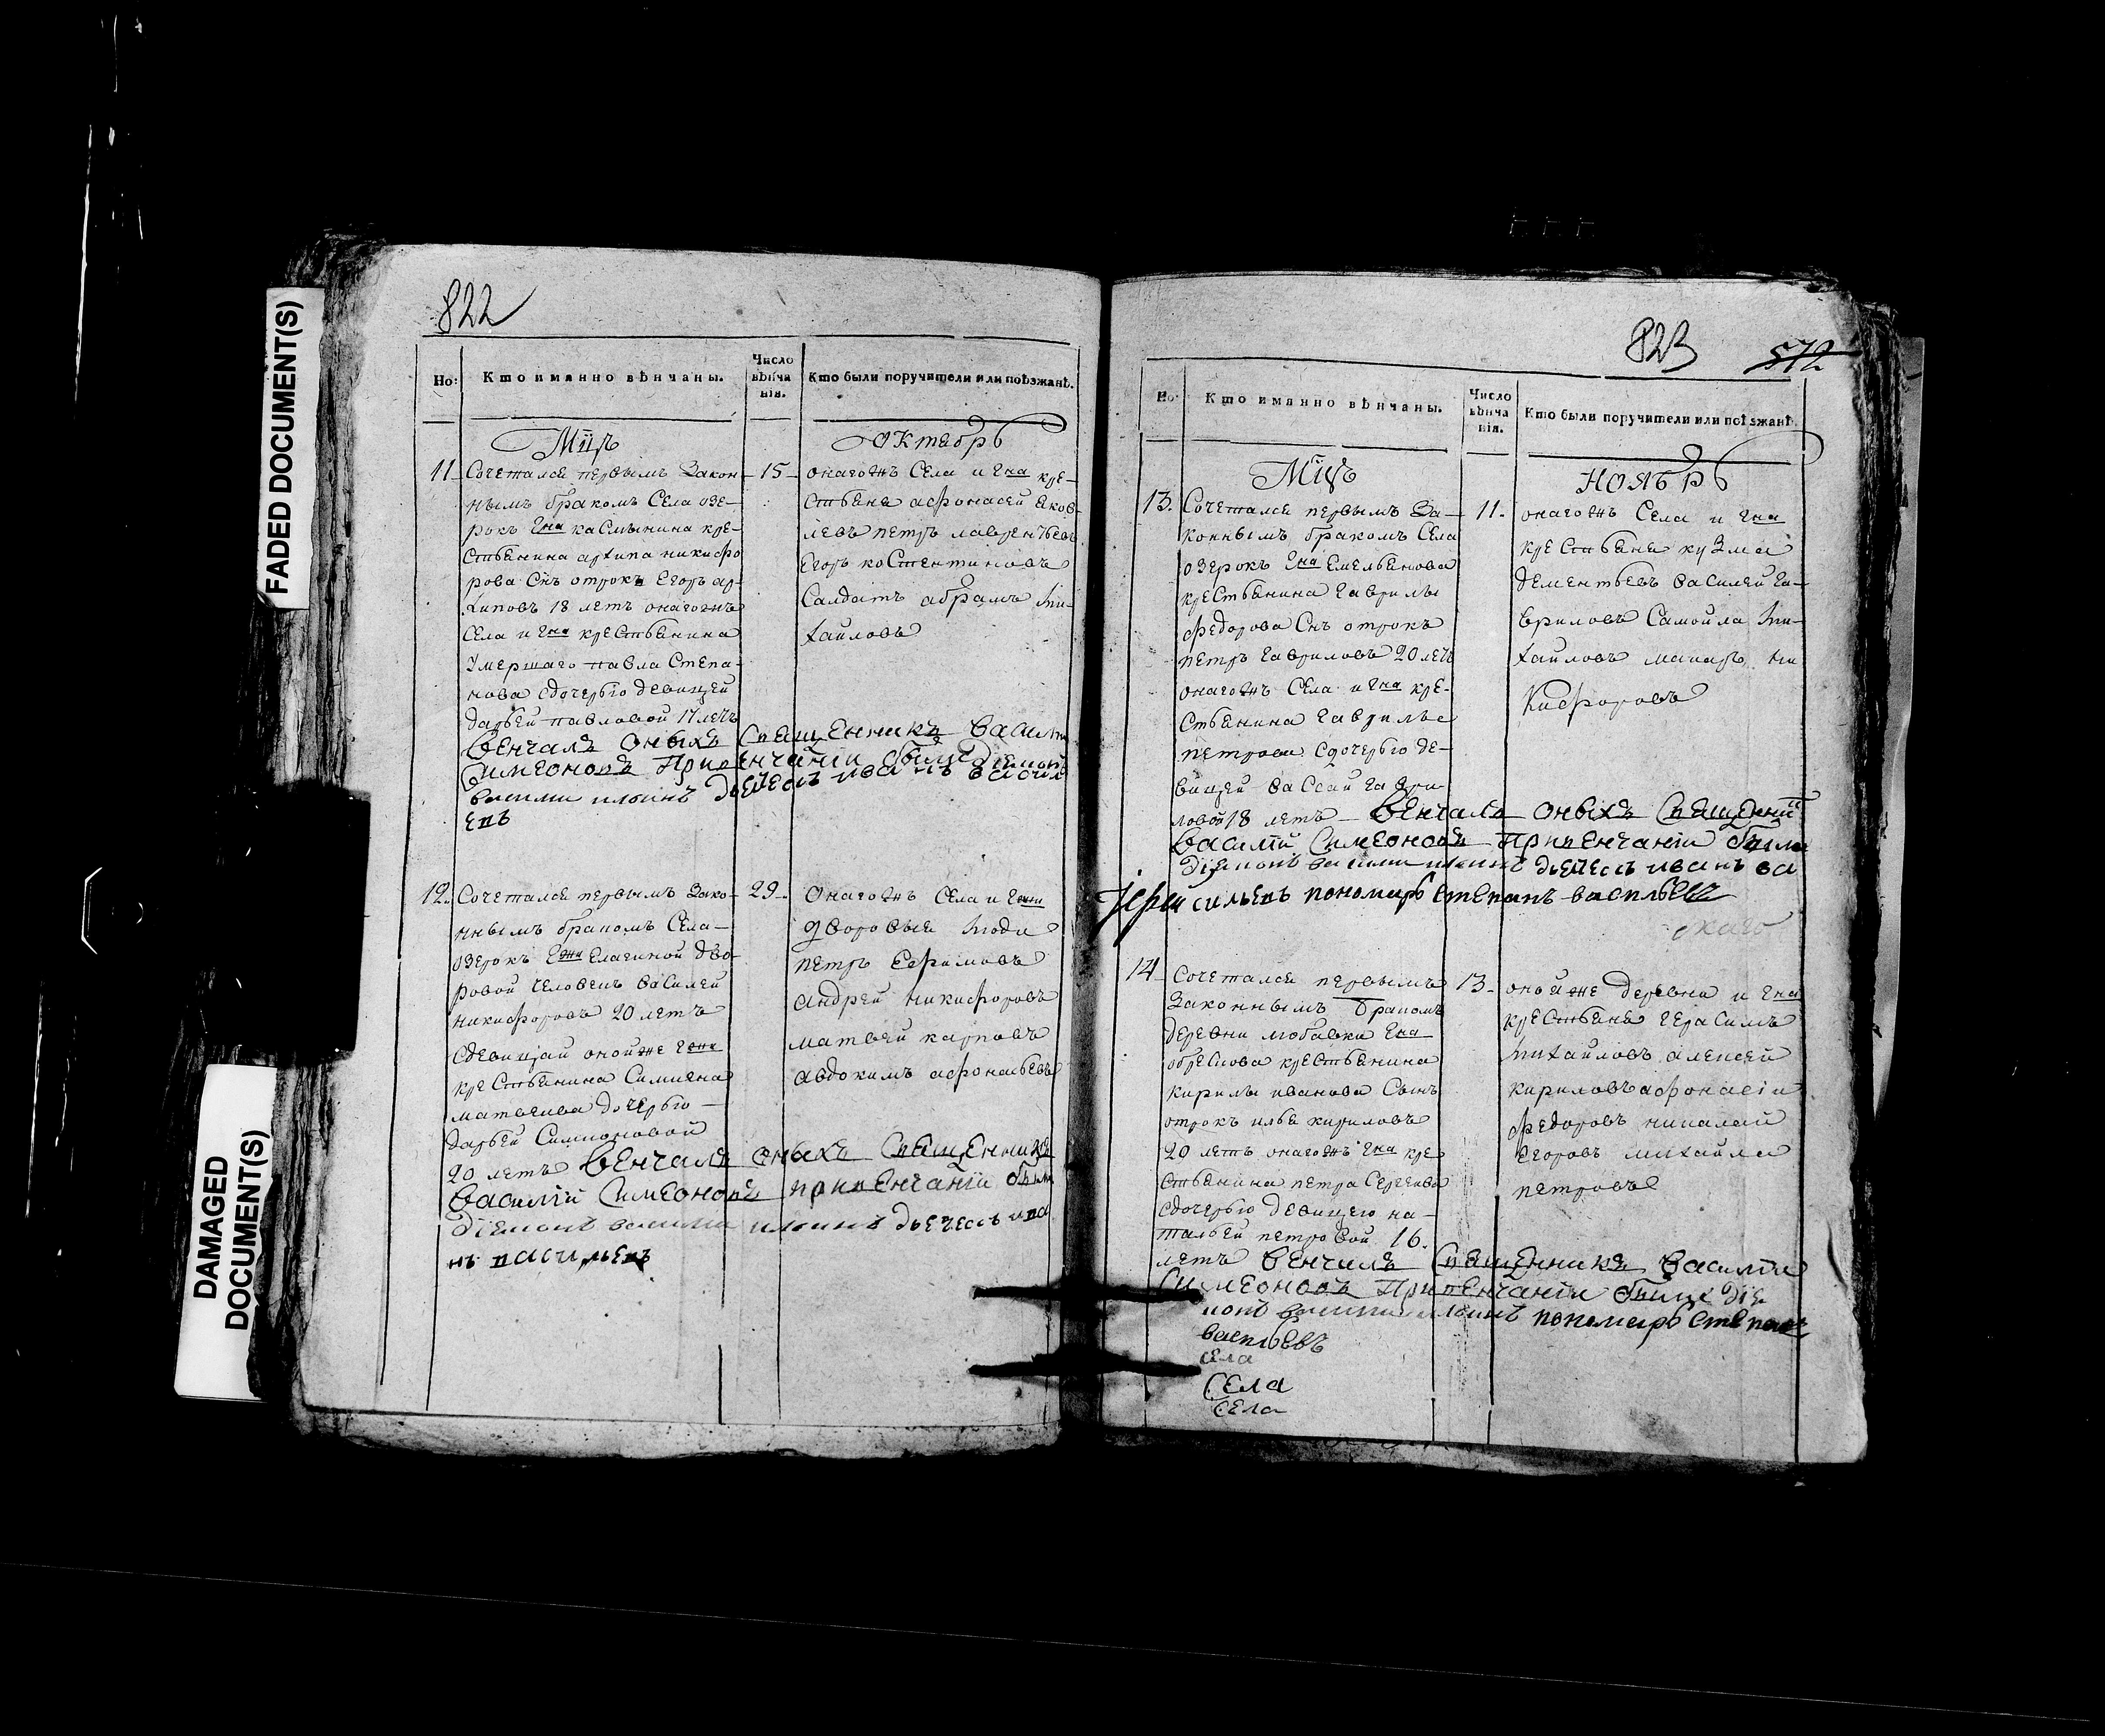 FADED DOCUMENT(S)
DAMAGED
DOCUMENT(S)
822
Но:
Кто имянно вѣнчаны.
Число
вѣнча
нія.
Кто были поручители или поѣзжанѣ.
Мцъ
Октябрь
11
Сочетался первымъ Закон-
нымъ бракомъ Села озе-
рокъ Гна касмынина кре-
стьянина архипа никифо
рова Снъ отрокъ Егоръ ар-
хиповъ 18 летъ онагожъ
Села и Гна крестьянина
умершаго павла Степа-
нова сдочерью девицей
дарьей павловой 17 летъ
15
онагожъ Села и Гна кре-
стьяня афонасей яков-
левъ петръ лаврентьевъ
Егоръ костентиновъ
Салдатъ абрамъ ми-
хайловъ
Венчалъ оныхъ Священникъ Василій
Симеоновъ При венчаніи были діаконъ
василій ильинъ дьячекъ иванъ василь
евъ
12.
Сочетался первымъ Зако-
ннымъ бракомъ Села
озерокъ Гжи Елагиной дво-
ровой человекъ василей
никифоровъ 20 летъ
сдевицай онойже Гжи
крестьянина Симиена
матвеива дочерью
дарьей Симионовой
20 летъ Венчалъ оныхъ Священникъ
Василій Симеоновъ при венчаніи были
діаконъ василій ильинъ дьячекъ ива
нъ васильевъ
29
Онагожъ Села и Гжи
дворовыя люди
петръ Ефимовъ
андрей никифоровъ
матвей карповъ
авдокимъ афонасьевъ
823
572
Но:
Кто имянно вѣнчаны.
Число
вѣнча
нія.
Кто были поручители или поѣзжанѣ.
Мцъ
НОЯБРЬ
13.
Сочетался первымъ За-
коннымъ бракомъ Села
озерокъ Гна Емельянова
крестьянина гаврилы
федорова Снъ отрокъ
петръ гавриловъ 20 летъ
онагожъ Села и Гна кре-
стьянина гаврилы
петрова сдочерью де-
вицей вассой гаври-
ловой 18 летъ Венчалъ оныхъ Священни
Василій Симеоновъ При венчаніи были
діяконъ василии ильинъ дьячекъ иванъ ва
Іерей сильевъ пономарь степанъ васильевъ
11.
онагожъ Села и Гна
крестьяня кузма
дементьевъ василей га-
вриловъ Самойла ми-
хайловъ макаръ ни
кифоровъ
14
Сочетался первымъ
Законнымъ бракомъ
деревни любавки Гна
крестьянина
кирилы иванова Сынъ
отрокъ илья кириловъ
20 летъ онагожъ Гна кре
стьянина петра Сергеива
сдочерью девицею на-
тальей петровой 16.
летъ Венчалъ Священникъ Василій
Симеоновъ При венчаніи были дія
конъ василии ильинъ пономарь степанъ
васильевъ
села
Села
Села
13
онойже деревни и Гна
крестьяня герасимъ
михайловъ алексей
кириловъ афонасіи
федоровъ николай
егоровъ михайла
петровъ